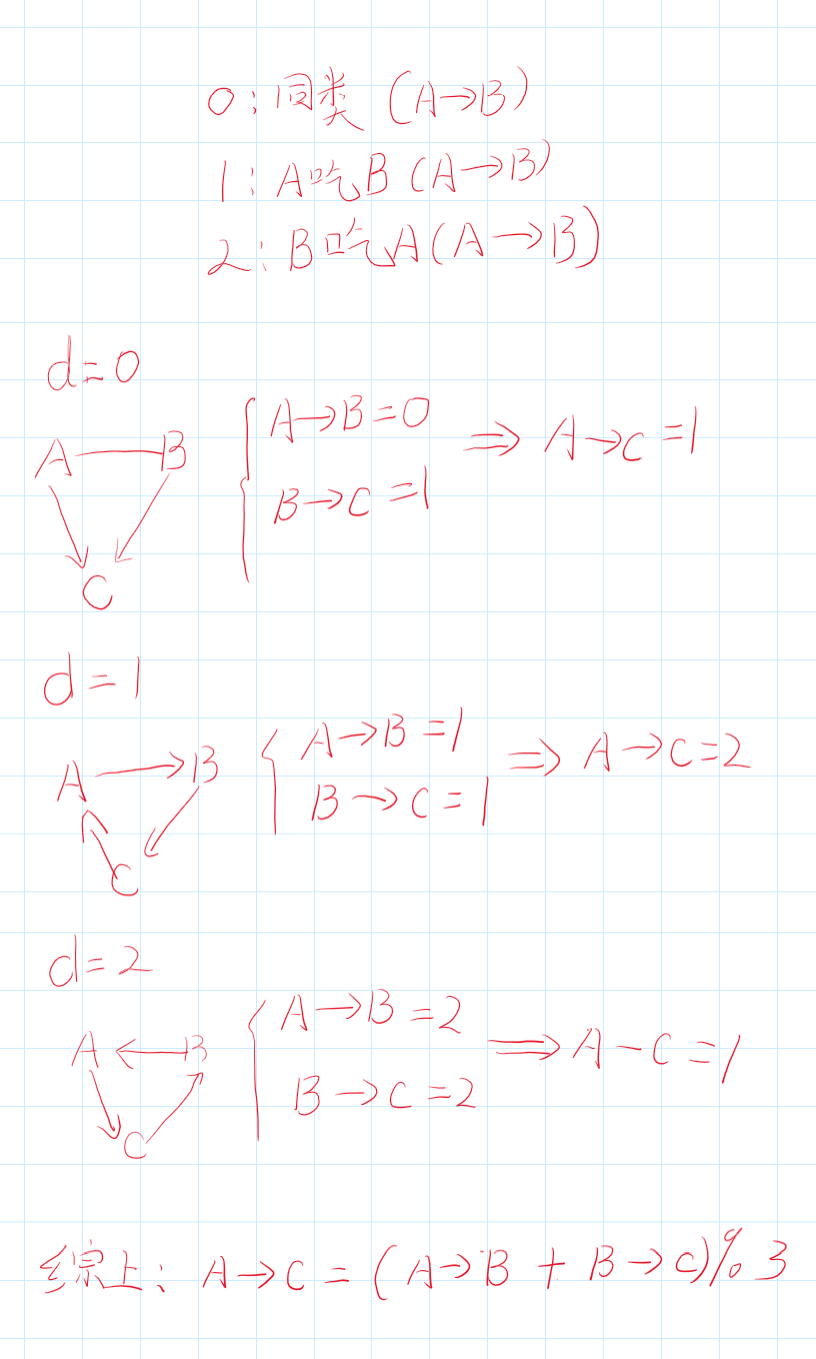 0:同类(A→B)
1:A吃B(A→B)
2:B吃A(A→B)
d=0
A B
C
A→B=0
B→C=1
⇒ A→C=1
d=1
A B
C
A→B=1
B→C=1
⇒ A→C=2
d=2
A B
C
A→B=2
B→C=2
⇒ A-C=1
综上: A→C=(A→B+B→C)%3